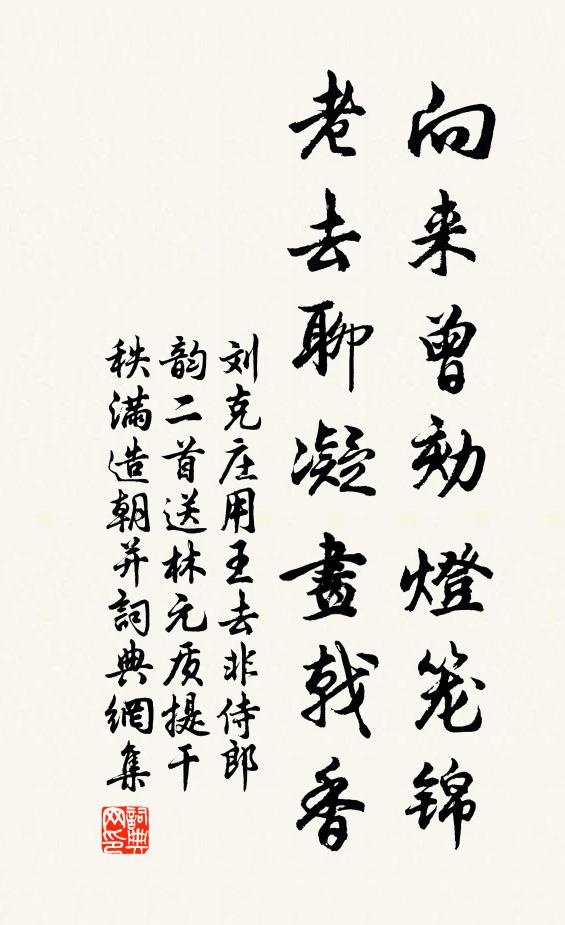 向来曾劾燈笼锦
老去聊凝畫戟香
刘克庄用王去非侍郎
韵二首送林元质提干
秩满造朝并詞典網集
詞典网印